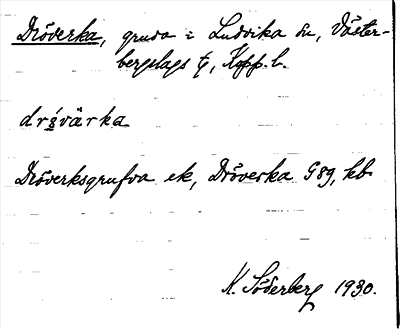 Dröverka, gruva i Ludvika sn, Väster-
bergslags tg, Kopp. l.
drövärka
Dröverksgrufva ek, Dröverka G 89, kb.
K. Söderberg 1930.